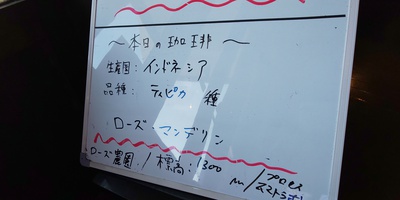 ～本日の珈琲～
生産国：インドネシア
品種：ティピカ 種
ローズ・マンデリン
ローズ農園／標高：1300m／プロセス